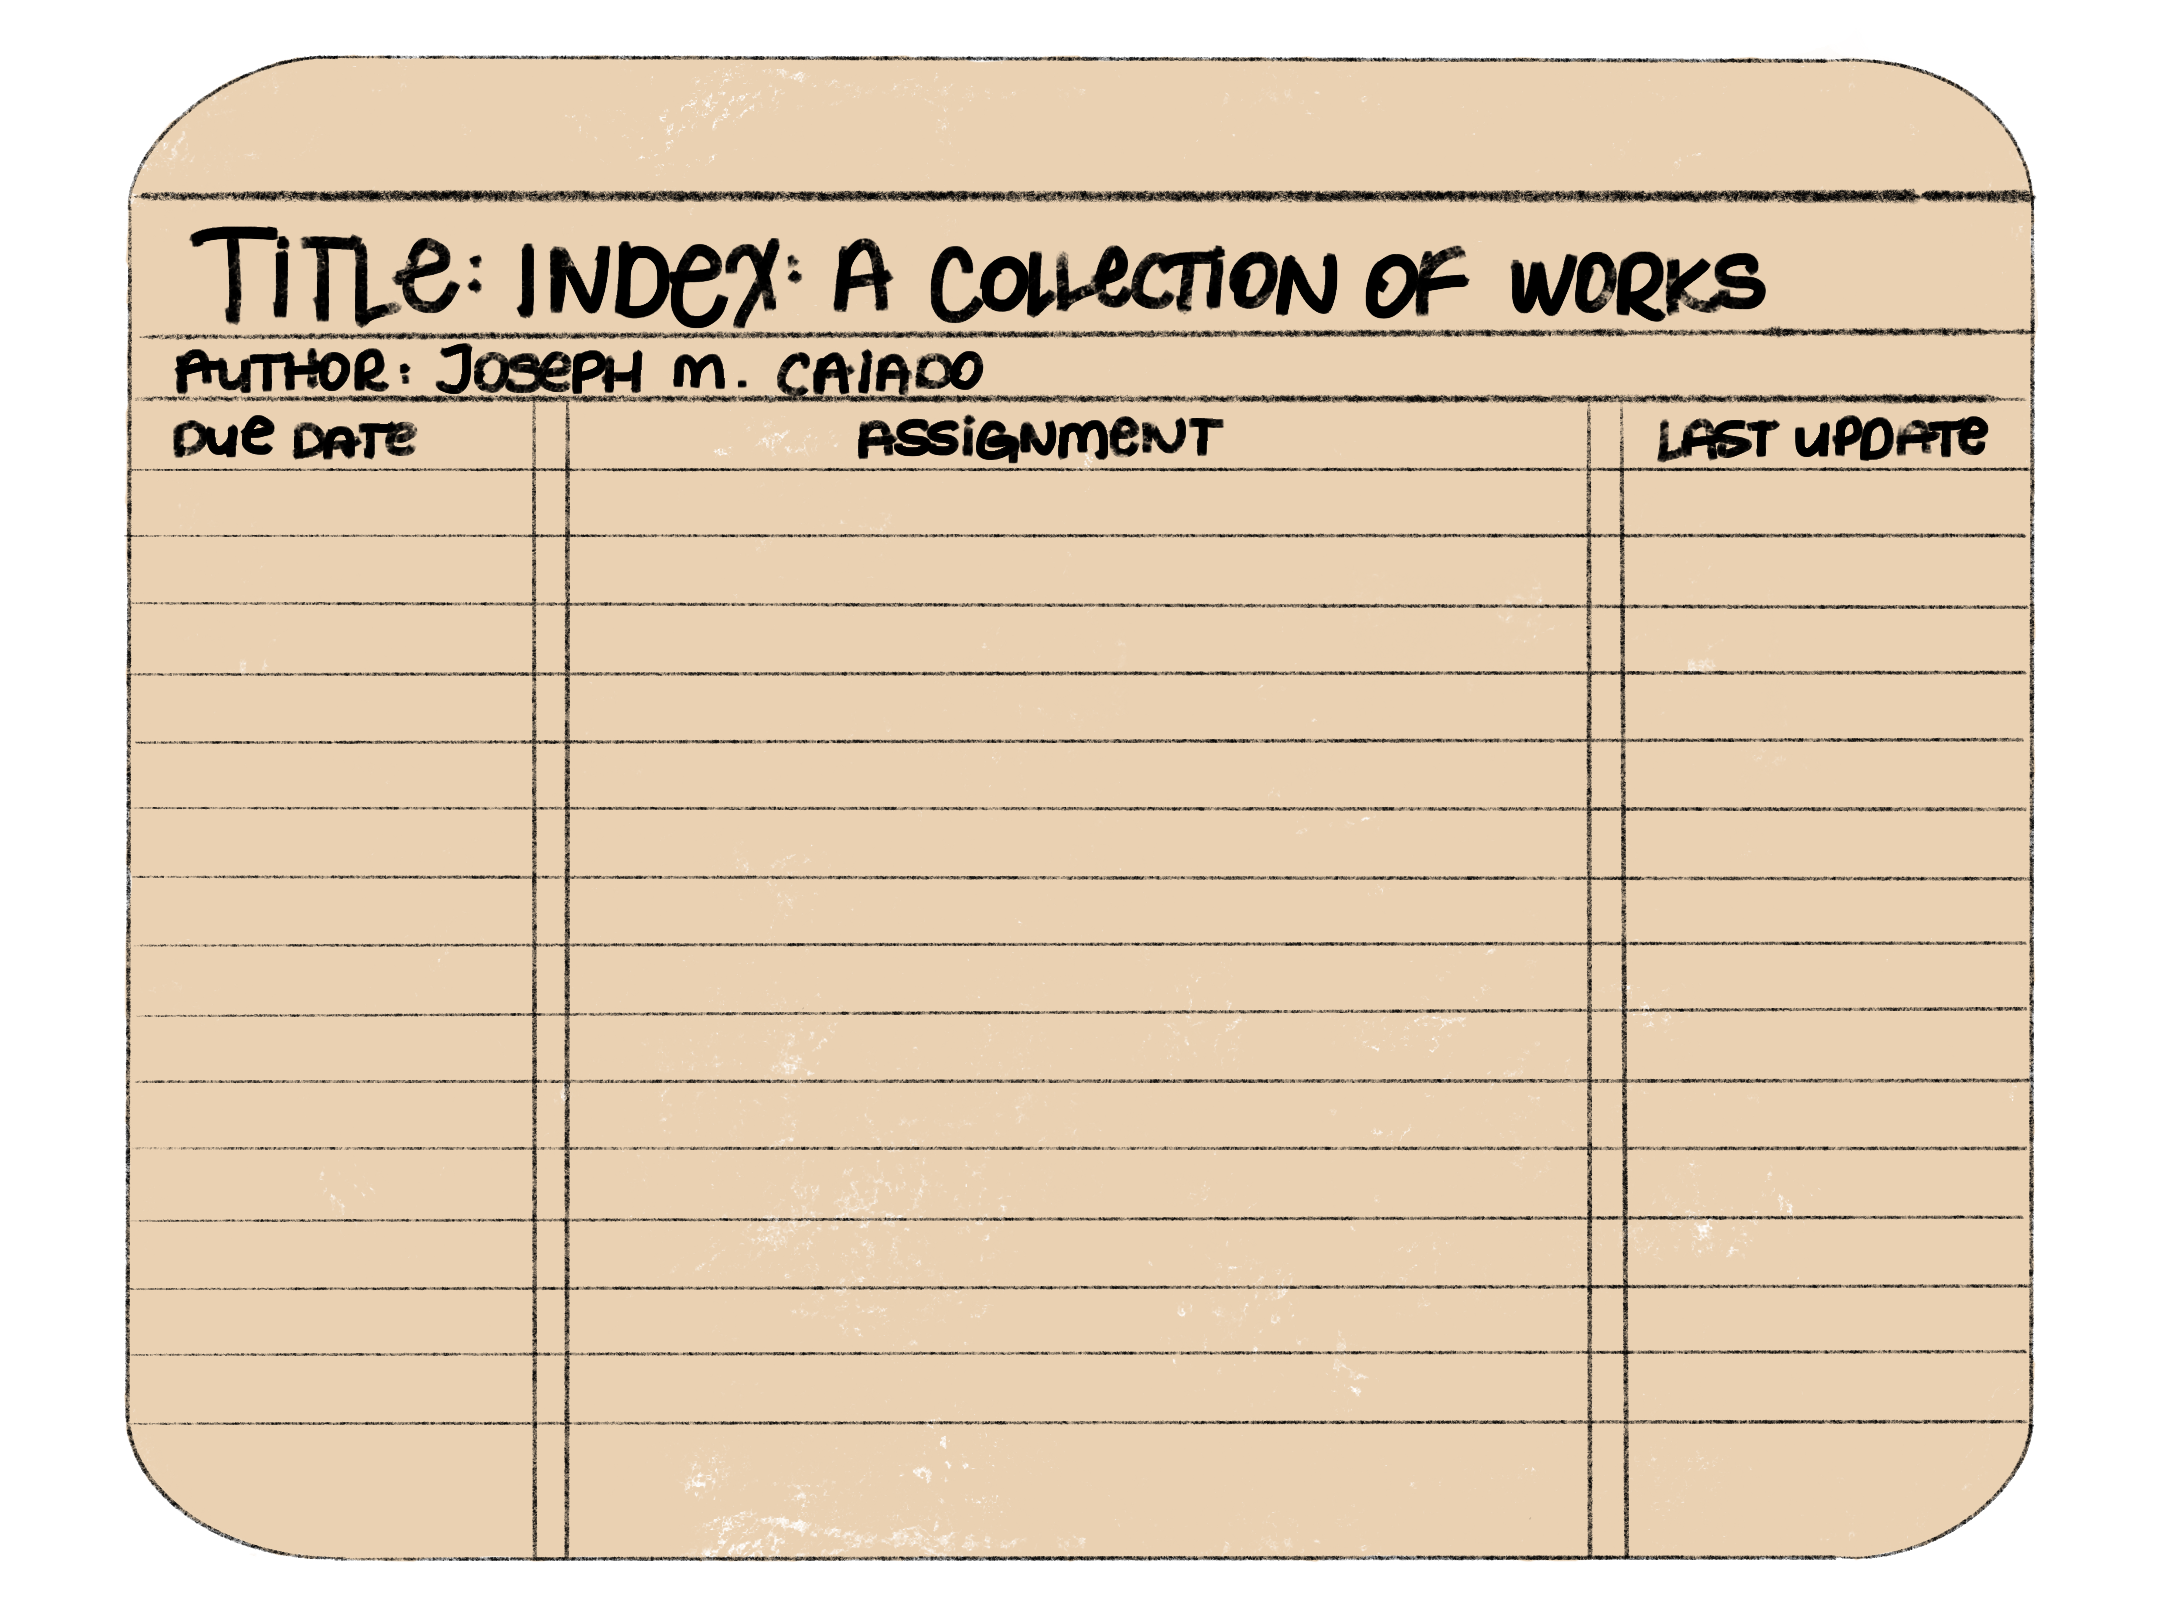 TiTLe: INDex: A COLLeCTION OF WORKS
AUTHOR: JOSePH M. CAIADO
Due DATe ASSiGNMeNT LAST UPDATe